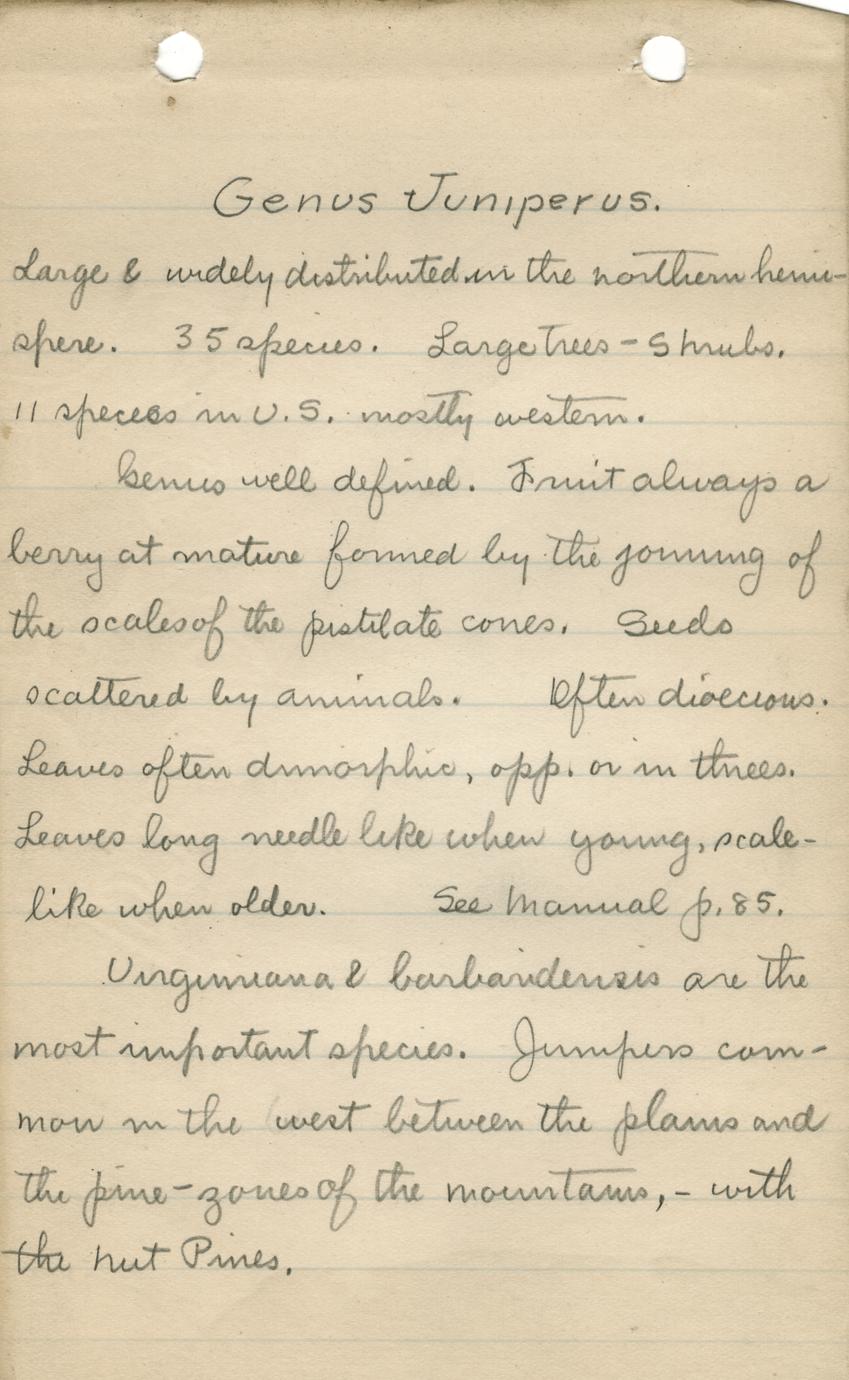 Genus Juniperus.
Large & widely distributed in the northern hemi-
spere. 35 species. Large trees - Shrubs.
11 species in U.S. mostly western.
Genus well defined. Fruit always a
berry at mature formed by the joining of
the scales of the pistilate cones. Seeds
scattered by animals. Often dioecious.
Leaves often dimorphic, opp. or in threes.
Leaves long needle like when young, scale-
like when older. See Manual p. 85.
Virginiana & barbandensis are the
most important species. Junipers com-
mon in the west between the plains and
the pine-zones of the mountains, - with
the nut Pines.